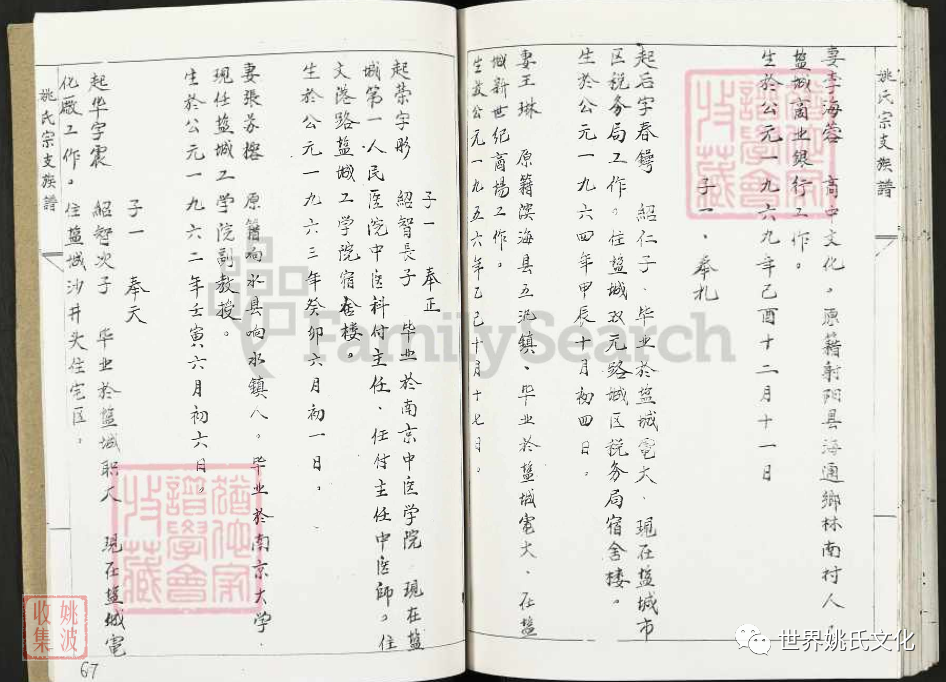 姚氏宗支族譜
妻李海蓉 高中文化。原籍射阳县海通鄉林南村人
盐城商业銀行工作。
生於公元一九六九年己酉十二月十一日
子一、奉礼
起后字春 紹仁子、毕业於盐城電大、現在盐城市
区税务局工作。住盐城双元路城区税务局宿舍楼。
生於公元一九六四年甲辰十月初四日。
妻王琳 原籍滨海县五汛鎮、毕业於盐城電大、在盐
城新世纪商場工作。
生於公元一九五六年乙巳十月十七日。
子一 奉正
起荣字彤 紹智長子 毕业於南京中医学院 現在盐
城第一人民医院中医科付主任、任付主任中医師。住
文港路盐城工学院宿舍楼。
生於公元一九六三年癸卯六月初一日。
妻張苏榕 原籍响水县响水鎮人。毕业於南京大学
現任盐城工学院副教授。
生於公元一九六二年壬寅六月初六日。
子一 奉天
起华字震 紹智次子 毕业於盐城职大 現在盐城電
化廠工作。住盐城沙井头住宅区。
姚氏宗支族譜
67
FamilySearch
姚波
收集
世界姚氏文化